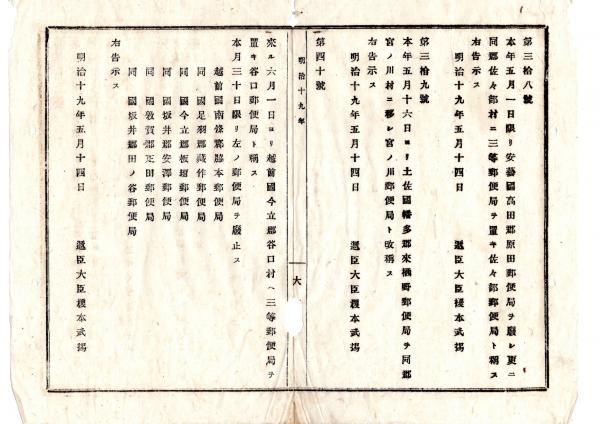 第三拾八號
本年五月一日限リ安藝國高田郡原田郵便局ヲ廢シ更ニ
同郡佐々部村ニ三等郵便局ヲ置キ佐々部郵便局ト稱ス
右告示ス
明治十九年五月十四日
遞信大臣榎本武揚
第三拾九號
本年五月十六日ヨリ土佐國幡多郡來栖野郵便局ヲ同郡
宮ノ川村ニ移シ宮ノ川郵便局ト改稱ス
右告示ス
明治十九年五月十四日
遞信大臣榎本武揚
第四十號
明治十九年
六
來ル六月一日ヨリ越前國今立郡谷口村ヘ三等郵便局ヲ
置キ谷口郵便局ト稱ス
本月三十日限リ左ノ郵便局ヲ廢止ス
越前國南條郡脇本郵便局
同 國足羽郡藏作郵便局
同 國今立郡板垣郵便局
同 國坂井郡安澤郵便局
同 國敦賀郡疋田郵便局
同 國坂井郡田ノ谷郵便局
右告示ス
明治十九年五月十四日
遞信大臣榎本武揚